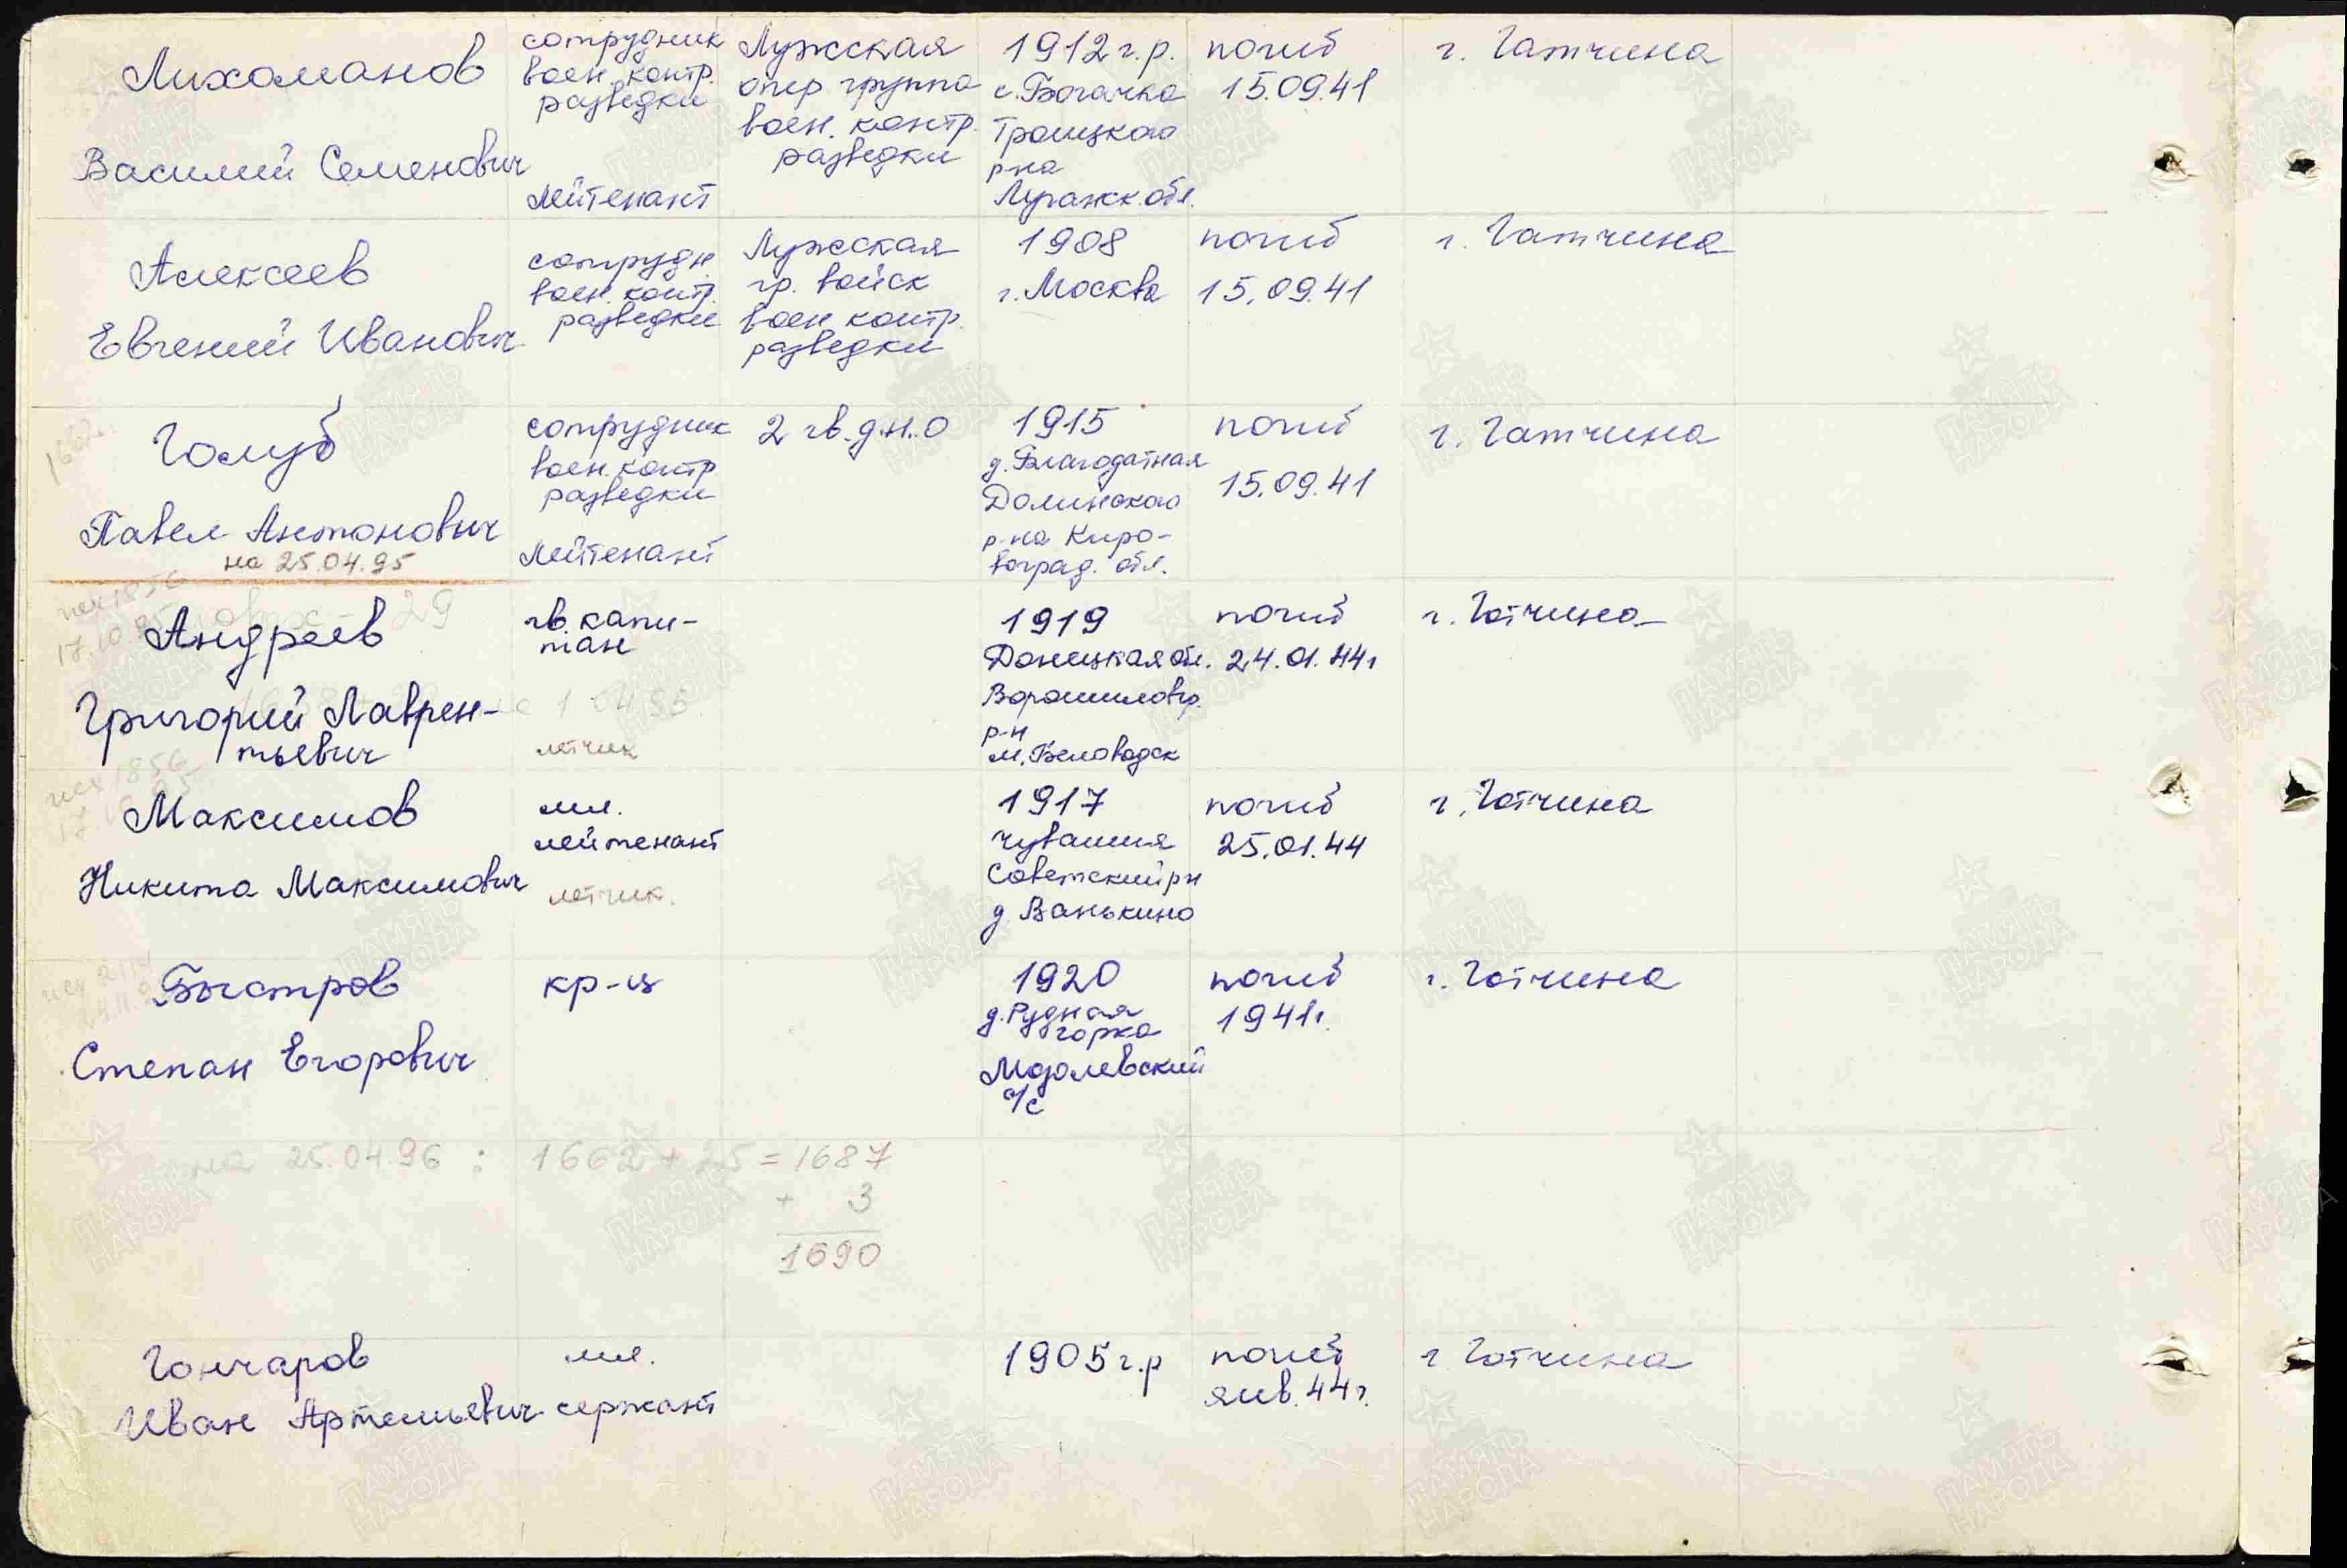 Лихоманов
Василий Семенович
сотрудник
воен. контр.
разведки
лейтенант
Лужская
опер группа
воен. контр.
разведки
1912 г.р.
с. Богачка
Троицкого
р-на
погиб
15.09.41
г. Гатчина
Алексеев
Евгений Иванович
сотрудн.
воен. контр.
разведки
Лужская
гр. войск
воен. контр.
разведки
1908
г. Москва
погиб
15.09.41
г. Гатчина
Голуб
Павел Антонович
на 25.04.95
сотрудник
воен. контр.
разведки
лейтенант
2 гв. д.н.о
1915
д. Благодатная
Долинского
р-на Киро-
воград. обл.
погиб
15.09.41
г. Гатчина
Андреев
Григорий Лаврен-
тьевич
гв. капи-
тан
летчик
1919
Донецкая обл.
Ворошиловгр.
р-н
м. Беловодск
погиб
24.01.44г
г. Гатчина
Максимов
Никита Максимович
мл.
лейтенант
летчик.
1917
Чувашия
Советский рн
д. Ванькино
погиб
25.01.44
г. Гатчина
Быстров
Степан Егорович
кр-ц
1920
д. Рудная
горка
Мдолевский
с/с
погиб
1941г.
г. Гатчина
на 25.04.96 : 1662 + 25 = 1687
+ 3
1690
Гончаров
Иван Артемьевич
мл.
сержант
1905 г.р
погиб
янв. 44 г.
г Гатчина